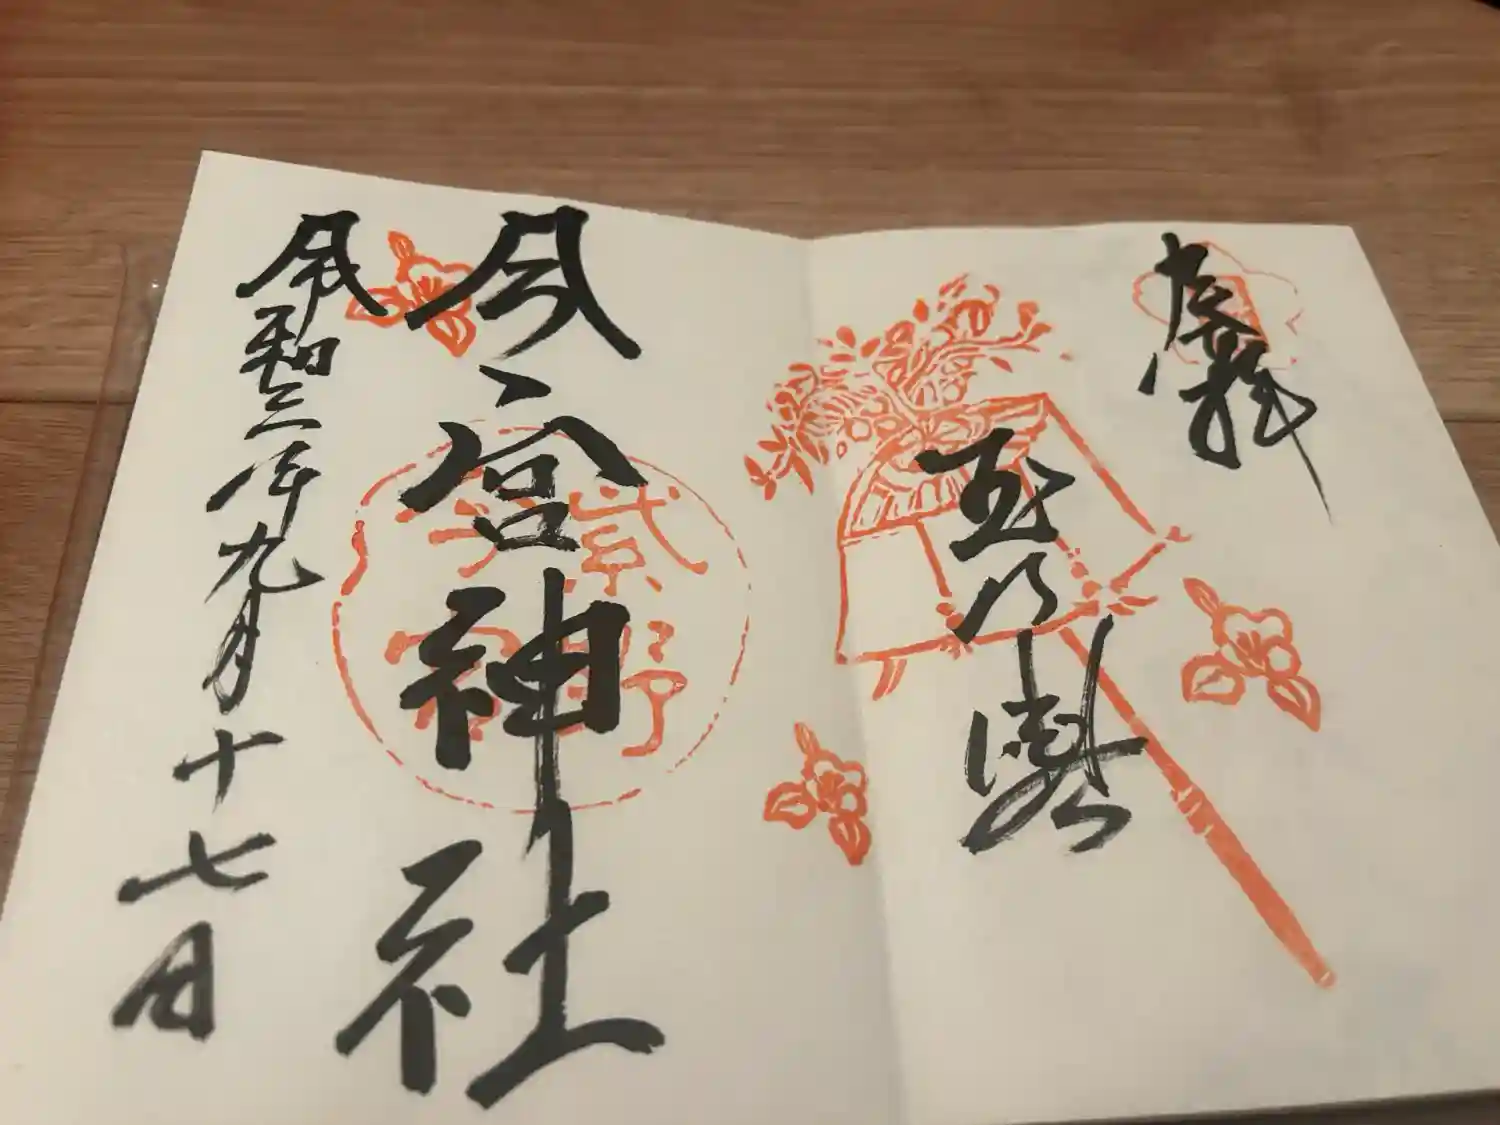 奉拝
玉の輿
今宮神社
紫野
今宮
令和三年九月十七日